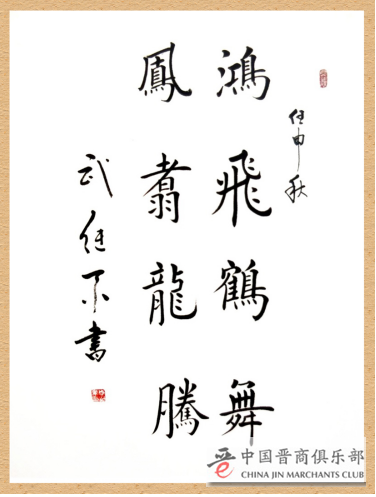 任申秋
鴻飛鶴舞
鳳翥龍騰
武書
中国晋商俱乐部
CHINA JIN MARCHANTS CLUB